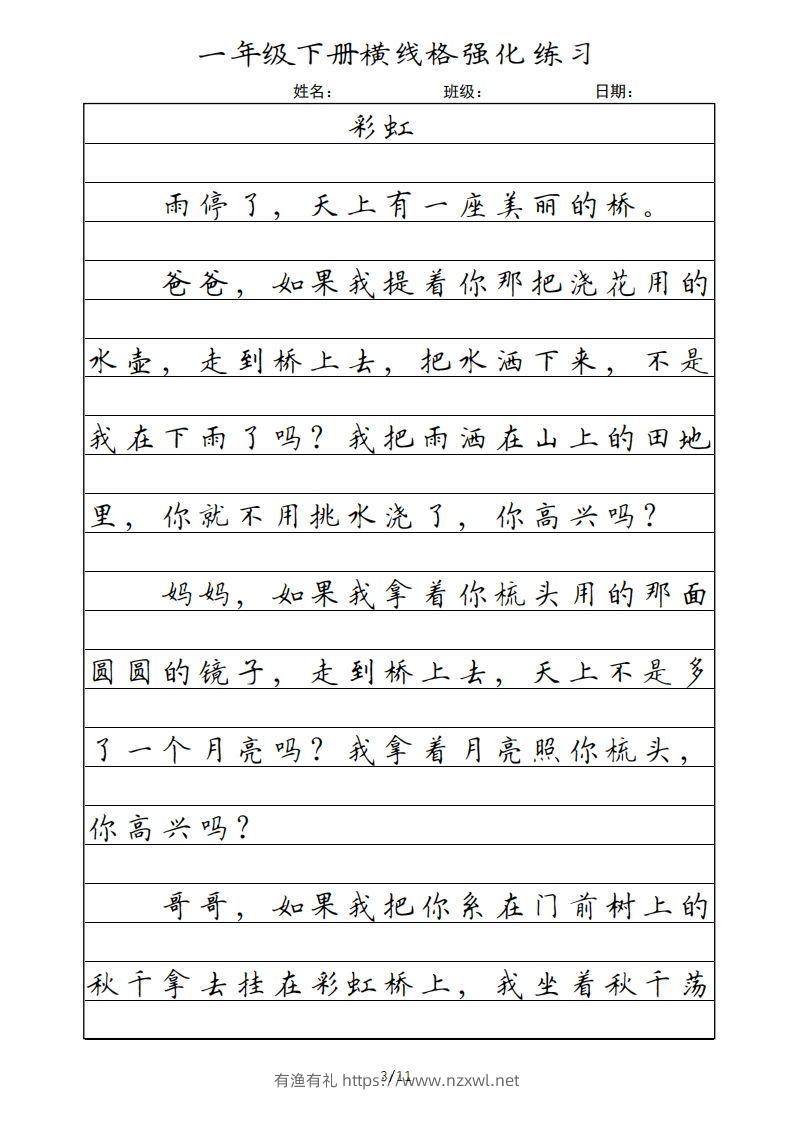 一年级下册横线格强化练习
姓名： 班级： 日期：
彩虹
雨停了，天上有一座美丽的桥。
爸爸，如果我提着你那把浇花用的
水壶，走到桥上去，把水洒下来，不是
我在下雨了吗？我把雨洒在山上的田地
里，你就不用挑水浇了，你高兴吗？
妈妈，如果我拿着你梳头用的那面
圆圆的镜子，走到桥上去，天上不是多
了一个月亮吗？我拿着月亮照你梳头，
你高兴吗？
哥哥，如果我把你系在门前树上的
秋千拿去挂在彩虹桥上，我坐着秋千荡
3/11
有渔有礼 https://www.nzxwl.net